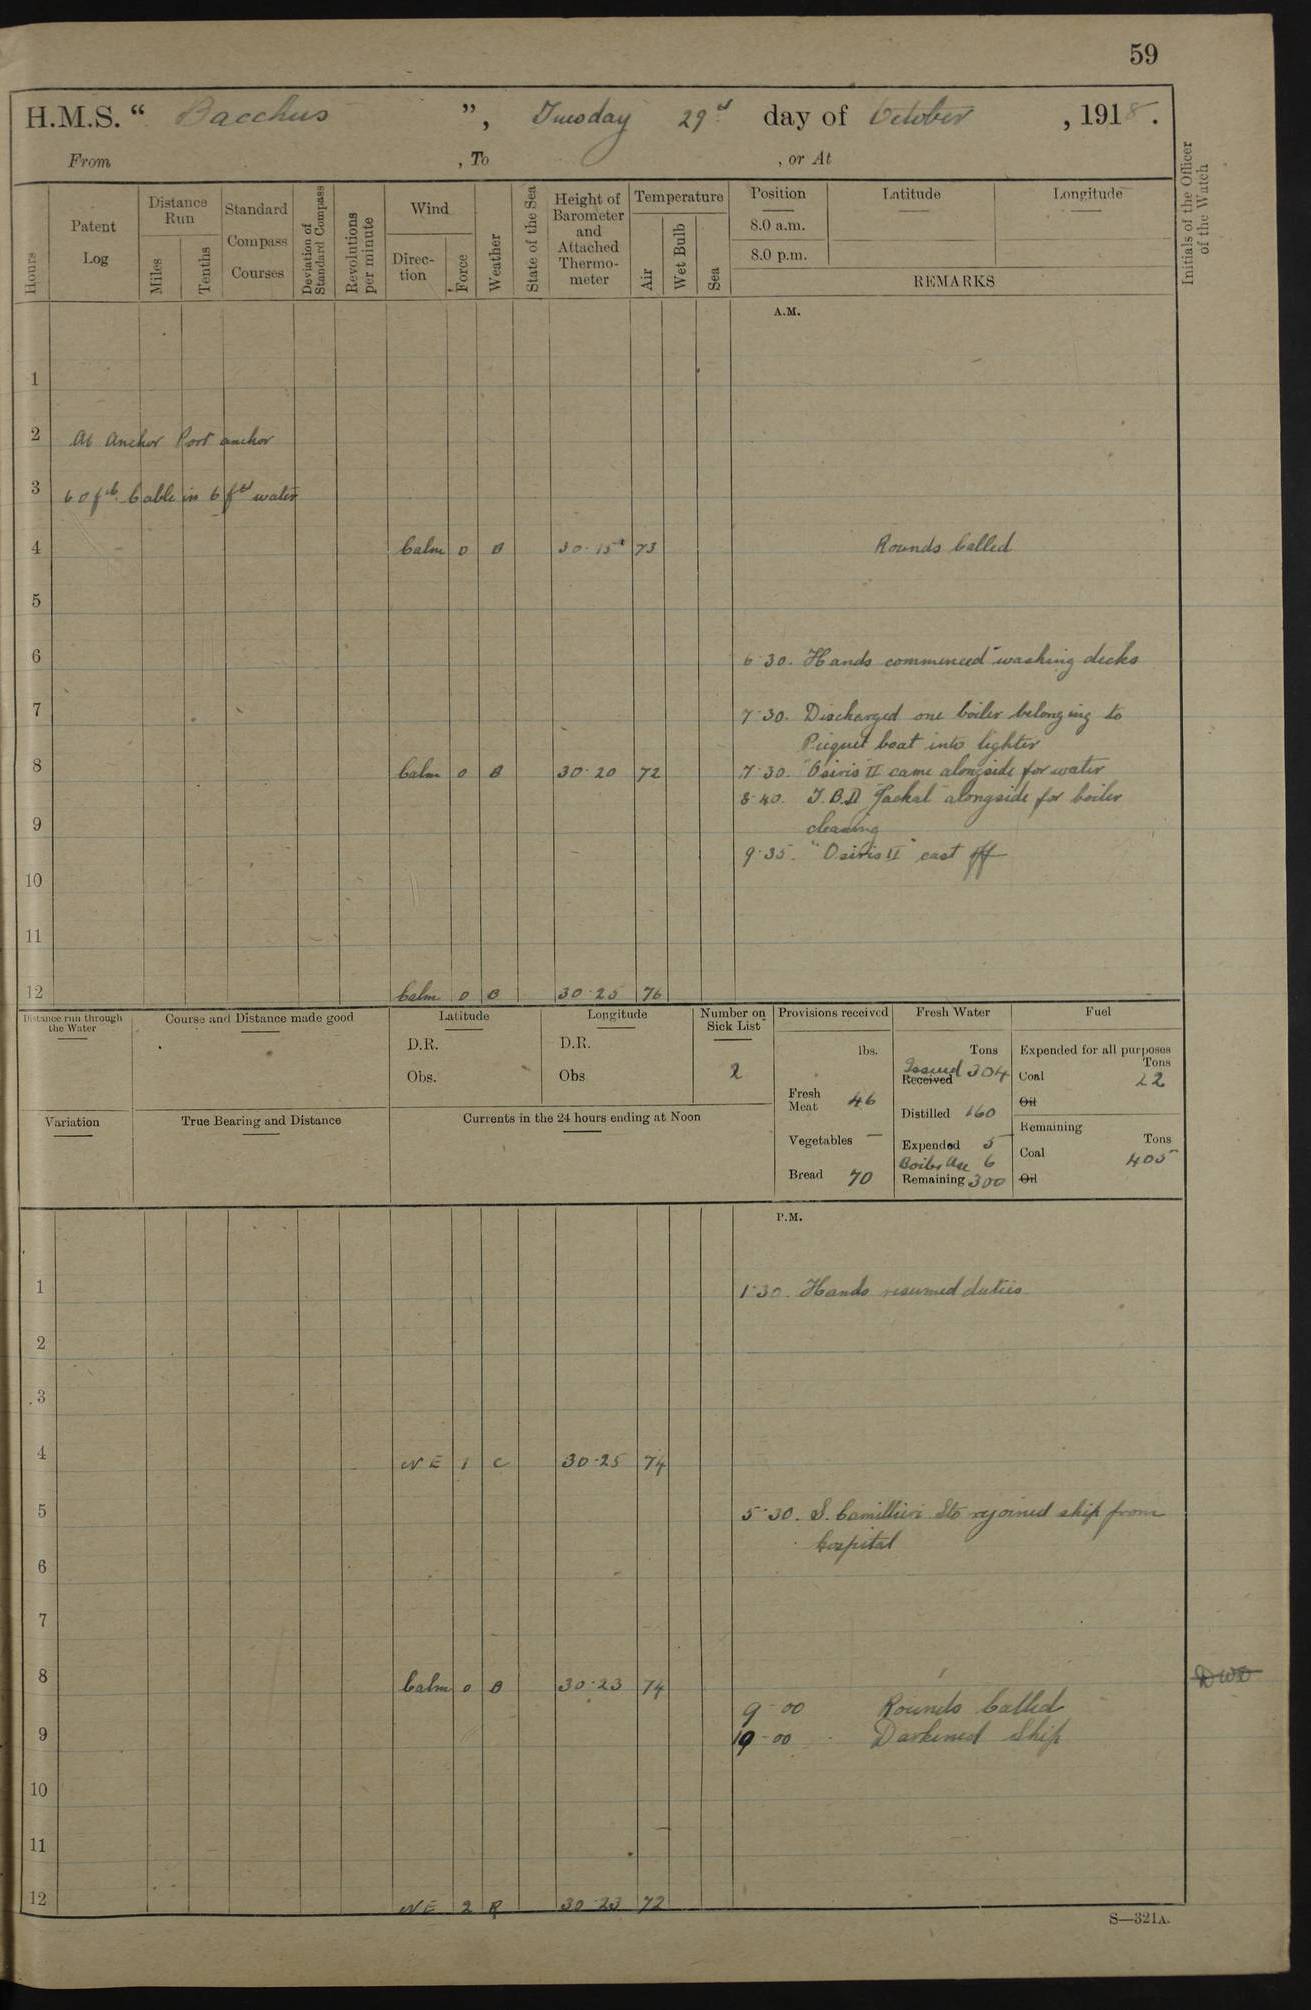 59
H.M.S. “ Bacchus ”, Tuesday 29th day of October , 1918.
From , To , or At
Hours
Patent Log
Distance Run
Miles
Tenths
Standard Compass Courses
Deviation of Standard Compass
Revolutions per minute
Wind
Direction
Force
Weather
State of the Sea
Height of Barometer and Attached Thermometer
Temperature
Air
Wet Bulb
Sea
Position
8.0 a.m.
8.0 p.m.
Latitude
Longitude
REMARKS
Initials of the Officer of the Watch
A.M.
1
2 At Anchor Port anchor
3 60 fth Cable in 6 fth water
4 Calm 0 B 30·15 73 Rounds Called
5
6 6·30. Hands commenced washing decks
7 7·30. Discharged one boiler belonging to
Picquet boat into lighter
8 Calm 0 B 30·20 72 7·30. "Osiris" II came alongside for water
8·40. T.B.D Jackal alongside for boiler
9 cleaning
9·35. "Osiris II" cast off
10
11
12 Calm 0 B 30·25 76
Distance run through the Water
Course and Distance made good
Latitude
D.R.
Obs.
Longitude
D.R.
Obs
Number on Sick List
2
Provisions received
lbs.
Fresh Meat 46
Vegetables —
Bread 70
Fresh Water
Tons
Issued 304
Received
Distilled 160
Expended 5
Boiler Use 6
Remaining 300
Fuel
Expended for all purposes
Tons
Coal 22
Oil
Remaining
Tons
Coal 405
Oil
Variation
True Bearing and Distance
Currents in the 24 hours ending at Noon
P.M.
1 1·30. Hands resumed duties
2
3
4 NE 1 C 30·25 74
5 5·30. S. Camillieri Sto rejoined ship from
hospital
6
7
8 Calm 0 B 30·23 74
9-00 Rounds Called
9 19-00 Darkened Ship
10
11
12 NE 2 R 30·23 72
S—321A.